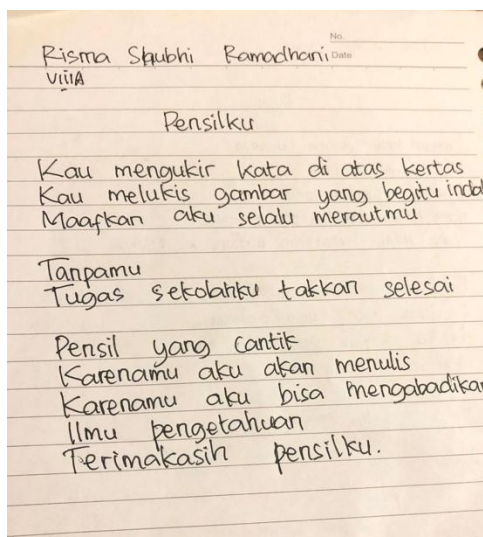 No.
Risma Shubhi Ramadhani Date
VIIIA
Pensilku
Kau mengukir kata di atas kertas
Kau melukis gambar yang begitu indah
Maafkan aku selalu merautmu
Tanpamu
Tugas sekolahku takkan selesai
Pensil yang cantik
Karenamu aku akan menulis
Karenamu aku bisa mengabadikan
Ilmu pengetahuan
Terimakasih pensilku.